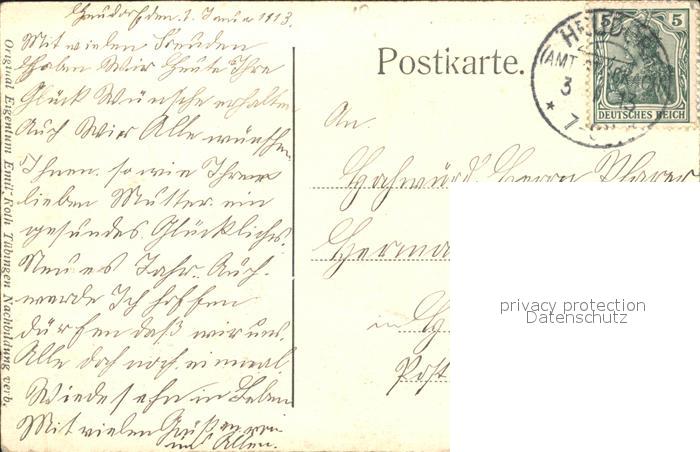 den 1. Januar 1913.
Mit vielen Freuden
Haben Wir Heute Ihre
Glück Wünsche erhalten
Auch Wir Alle wünschen
Ihnen. so wie Ihrer
lieben Mutter. ein
gesundes. Glückliches.
Neues Jahr. Auch.
werde Ich hoffen
dürfen daß wir uns.
Alle doch noch einmal.
Wiedersehn im Leben
Mit vielen Grüßen von
uns Allen.
Original Eigentum Emil Roth Tübingen Nachbildung verb.
Postkarte.
5 5
DEUTSCHES REICH
(AMT
3
13
* 7-8
An.
Hochwürd. Herrn Pfarrer
Herma
in
Post
privacy protection
Datenschutz